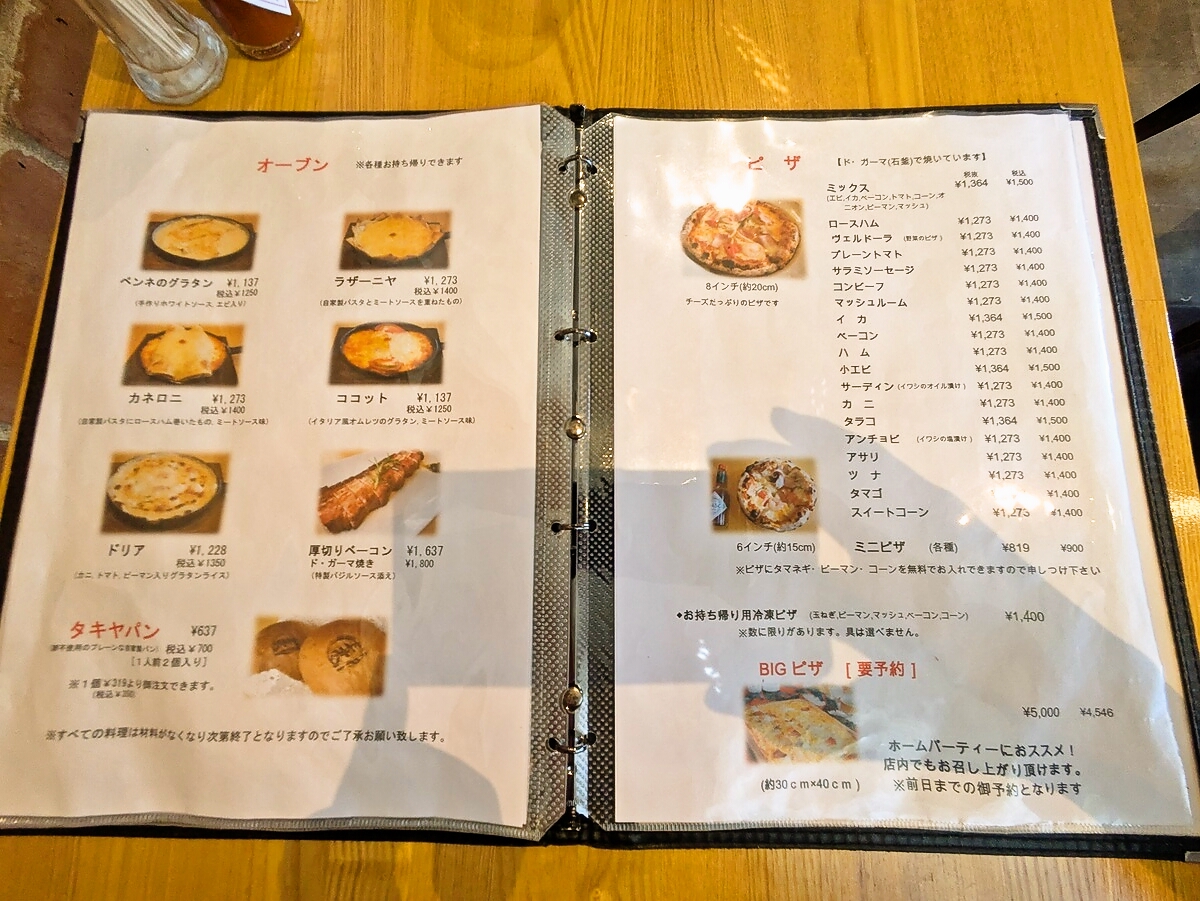 オーブン ※各種お持ち帰りできます
ペンネのグラタン ¥1,137
税込¥1250
(手作りホワイトソース、エビ入り)
ラザーニヤ ¥1,273
税込¥1400
(自家製パスタとミートソースを重ねたもの)
カネロニ ¥1,273
税込¥1400
(自家製パスタにロースハム巻いたもの、ミートソース味)
ココット ¥1,137
税込¥1250
(イタリア風オムレツのグラタン、ミートソース味)
ドリア ¥1,228
税込¥1350
(カニ、トマト、ピーマン入りグラタンライス)
厚切りベーコン ¥1,637
ド・ガーマ焼き ¥1,800
(特製バジルソース添え)
タキヤパン ¥637
不使用のプレーンな自家製パン) 税込¥700
[1人前2個入り]
※1個¥319より御注文できます。
(税込¥350)
※すべての料理は材料がなくなり次第終了となりますのでご了承お願い致します。
ピ ザ 【ド・ガーマ(石釜)で焼いています】
税抜 税込
ミックス ¥1,364 ¥1,500
(エビ,イカ,ベーコン,トマト,コーン,オ
ニオン,ピーマン,マッシュ)
ロースハム ¥1,273 ¥1,400
ヴェルドーラ (野菜のピザ) ¥1,273 ¥1,400
プレーントマト ¥1,273 ¥1,400
サラミソーセージ ¥1,273 ¥1,400
コンビーフ ¥1,273 ¥1,400
マッシュルーム ¥1,273 ¥1,400
イ カ ¥1,364 ¥1,500
ベーコン ¥1,273 ¥1,400
ハ ム ¥1,273 ¥1,400
小エビ ¥1,364 ¥1,500
サーディン (イワシのオイル漬け) ¥1,273 ¥1,400
カ ニ ¥1,273 ¥1,400
タラコ ¥1,364 ¥1,500
アンチョビ (イワシの塩漬け) ¥1,273 ¥1,400
アサリ ¥1,273 ¥1,400
ツ ナ ¥1,273 ¥1,400
タマゴ ¥1,273 ¥1,400
スイートコーン ¥1,273 ¥1,400
8インチ(約20cm)
チーズたっぷりのピザです
6インチ(約15cm) ミニピザ (各種) ¥819 ¥900
※ピザにタマネギ・ピーマン・コーンを無料でお入れできますので申しつけ下さい
◆お持ち帰り用冷凍ピザ (玉ねぎ,ピーマン,マッシュ,ベーコン,コーン) ¥1,400
※数に限りがあります。具は選べません。
BIG ピザ [要予約]
¥5,000 ¥4,546
ホームパーティーにおススメ!
店内でもお召し上がり頂けます。
(約30cm×40cm) ※前日までの御予約となります